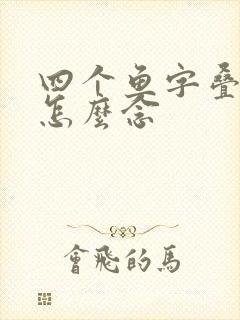 四个鱼字叠
怎麼念
會飛的馬